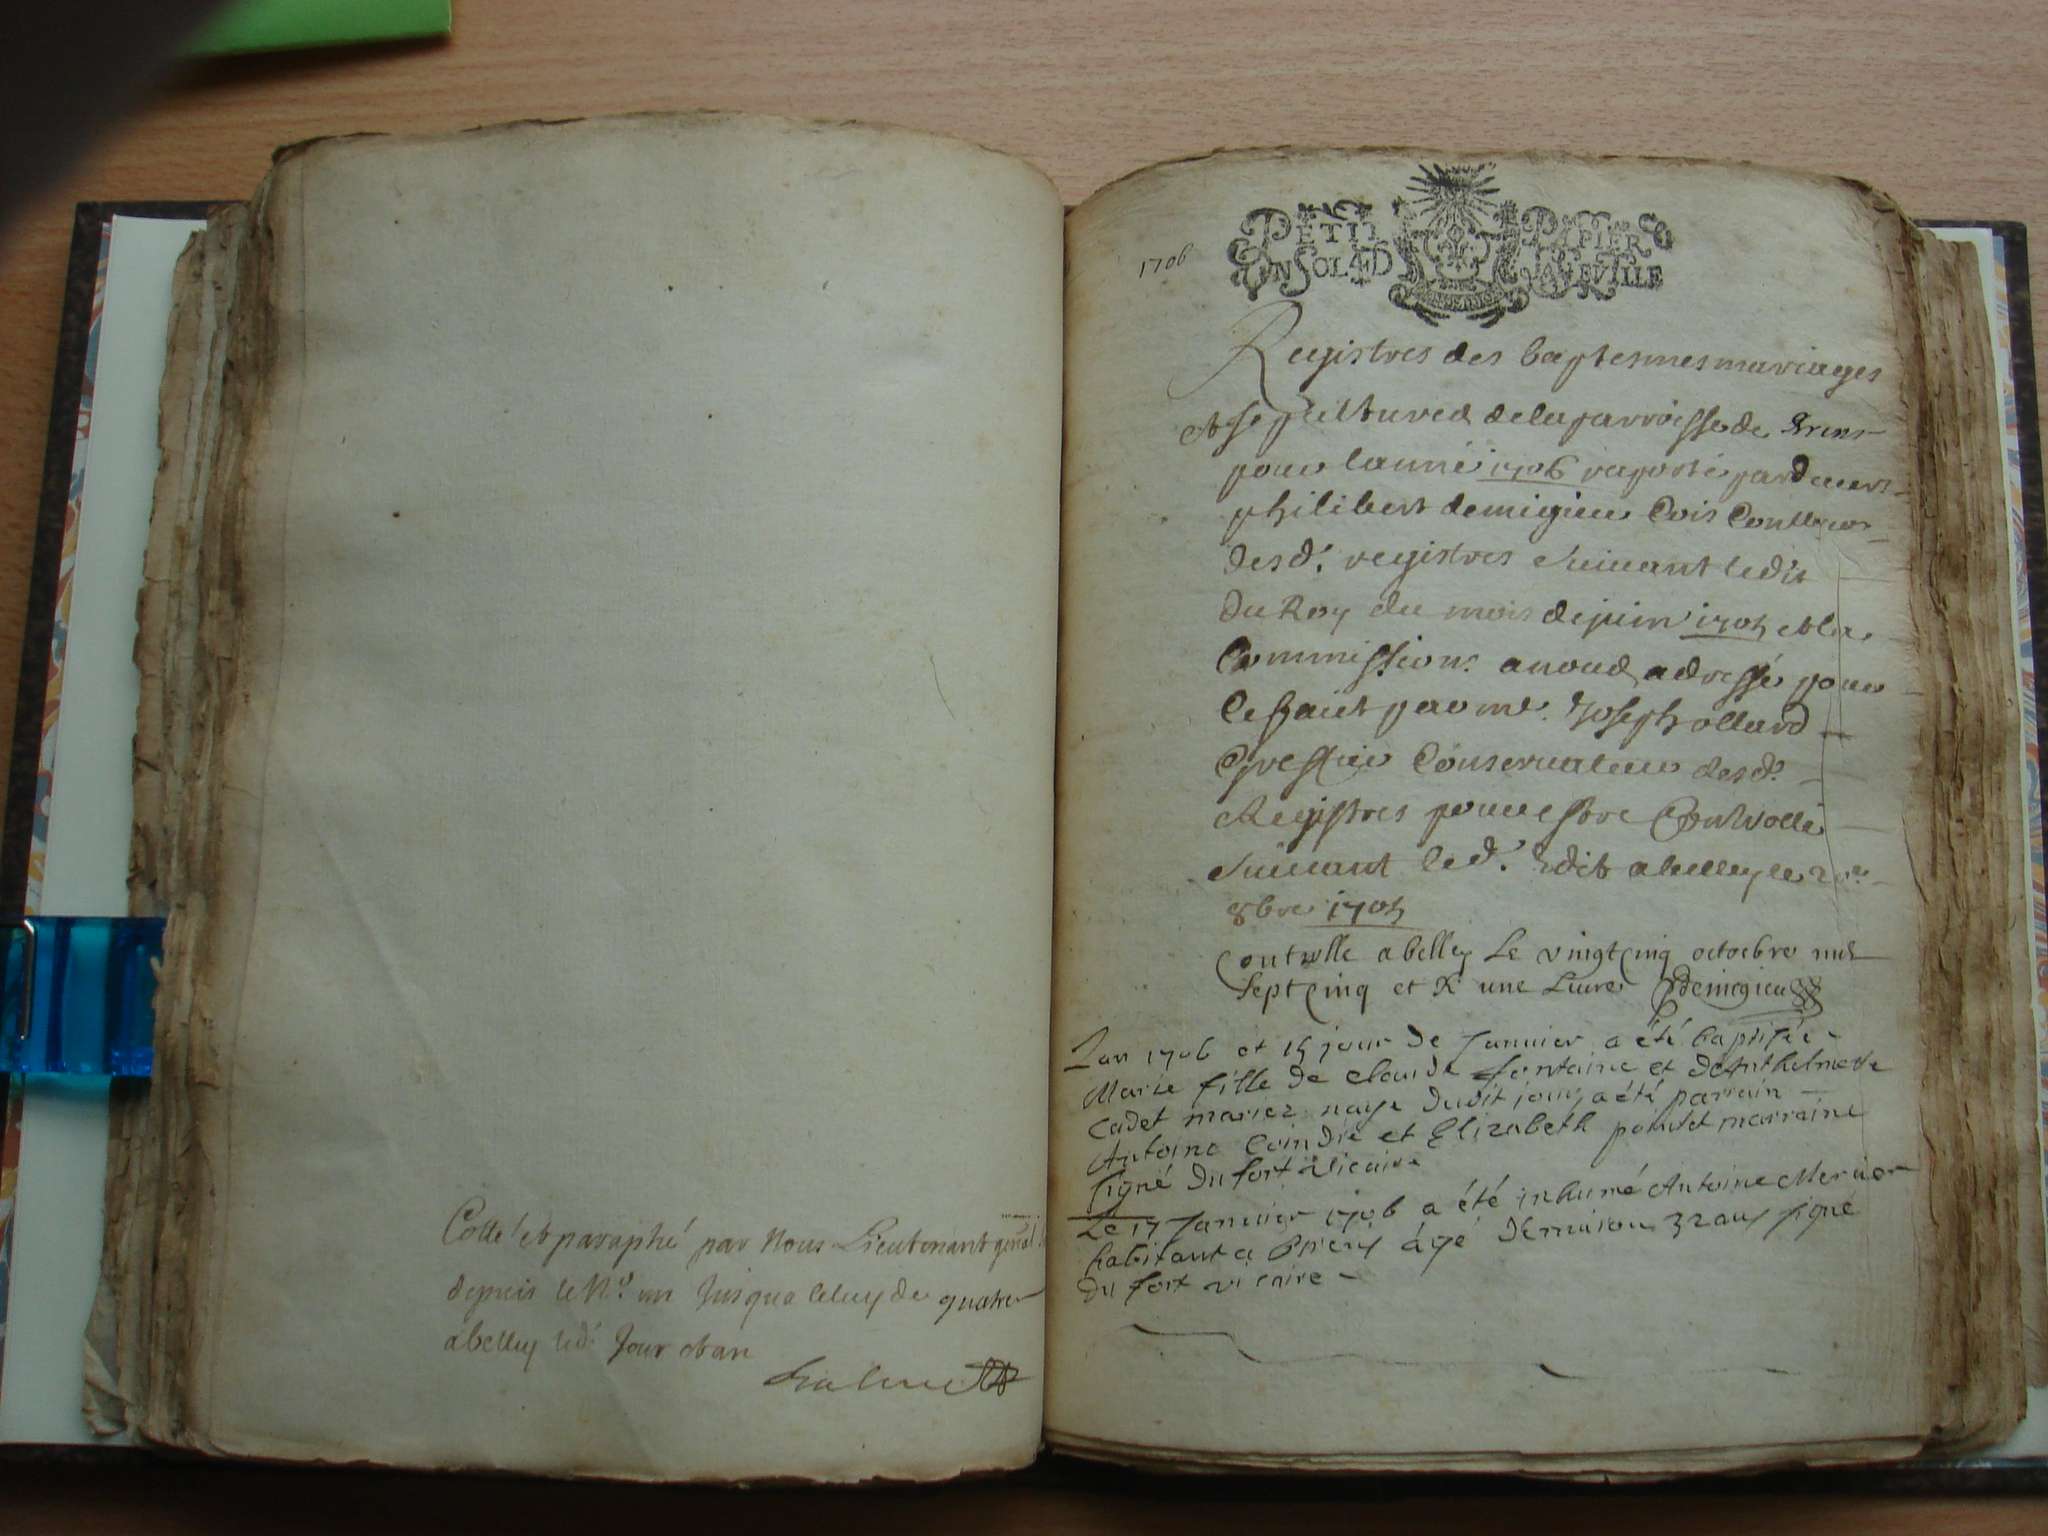 Cotté et paraphé par Nous Lieutenant genéal
depuis le N° un Jusque celuy de quatre
abelley led. Jour et an
1706
PETIT PAPIER
UN SOL 4 D LA FEVILLE
Registres des baptesmes mariages
et sepultures de la parroisse de Brens
pour lanné 1706 raporté par
philibert demigieu Cons Conlleur
desd. registres suiuant ledit
du Roy du mois de juin 1705 et la
Commission a nous adressé pour
Ce faict par me. Joseph ollard
Greffier Conseruateur desd.
Registres pour estre Controllé
suiuant led. Edit abelley le
8bre 1705
Controlle abelley Le vingtcinq octobre mil
septcinq et R une Liure Demigieu
Lan 1706 et 15 jour de Januier a été baptisée
Marie fille de claude fontaine et de Anthelmette
Cadet mariez naye dudit jour, a été parrain
Antoine Coindre et Elizabeth pointet marraine
signé Dufort vicaire
Le 17 Januier 1706 a été inhumé Antoine Mercier
habitant a âgé Denuiron 32 ans signé
Du fort vicaire